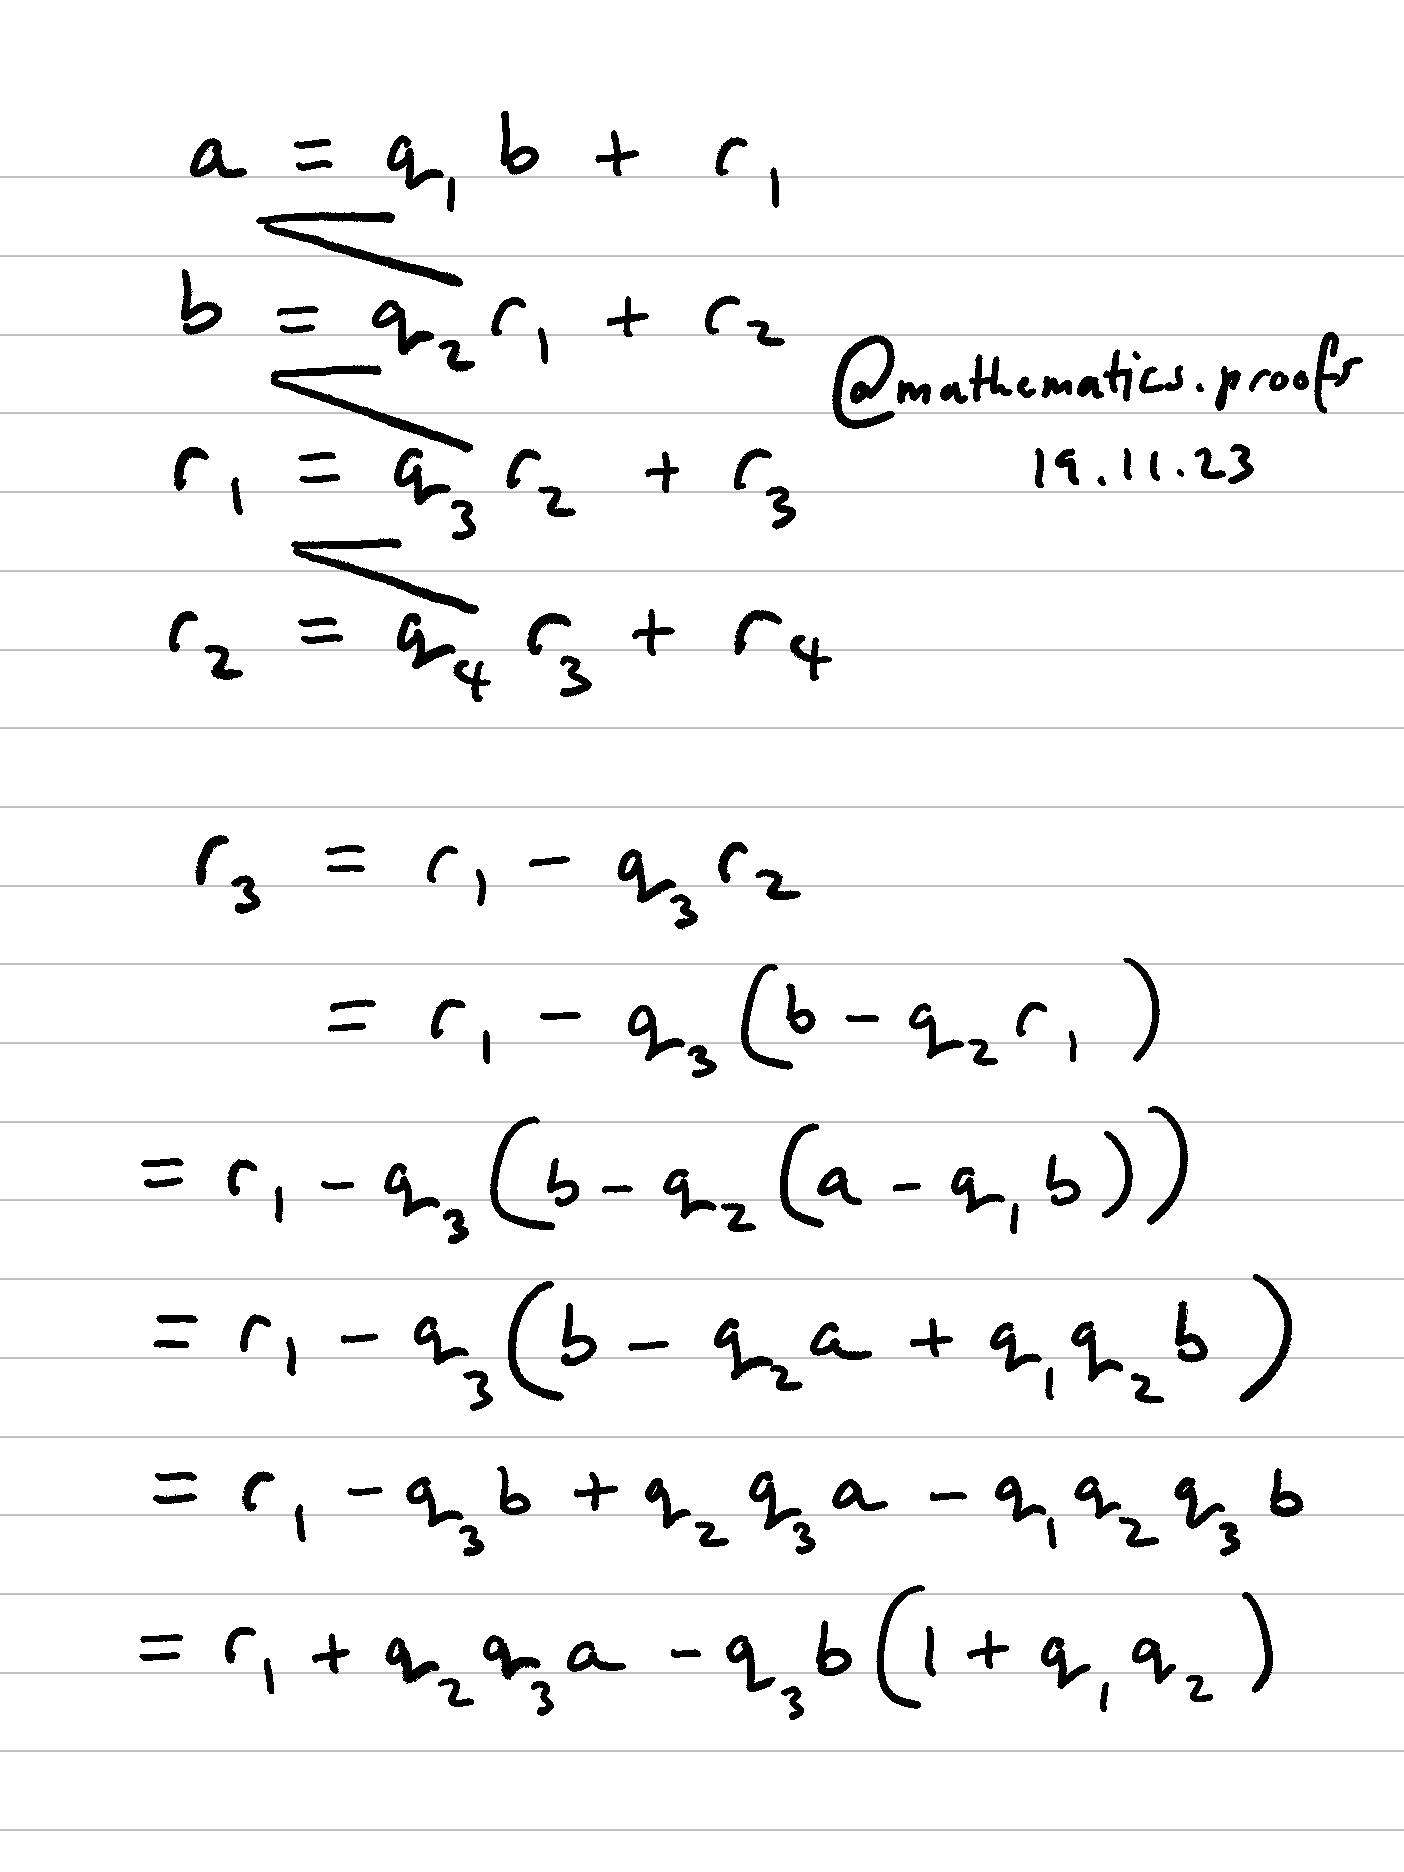 a = q₁ b + r₁
b = q₂ r₁ + r₂
@mathematics.proofs
r₁ = q₃ r₂ + r₃
19.11.23
r₂ = q₄ r₃ + r₄
r₃ = r₁ - q₃ r₂
= r₁ - q₃ (b - q₂ r₁)
= r₁ - q₃ (b - q₂ (a - q₁ b))
= r₁ - q₃ (b - q₂ a + q₁ q₂ b)
= r₁ - q₃ b + q₂ q₃ a - q₁ q₂ q₃ b
= r₁ + q₂ q₃ a - q₃ b (1 + q₁ q₂)